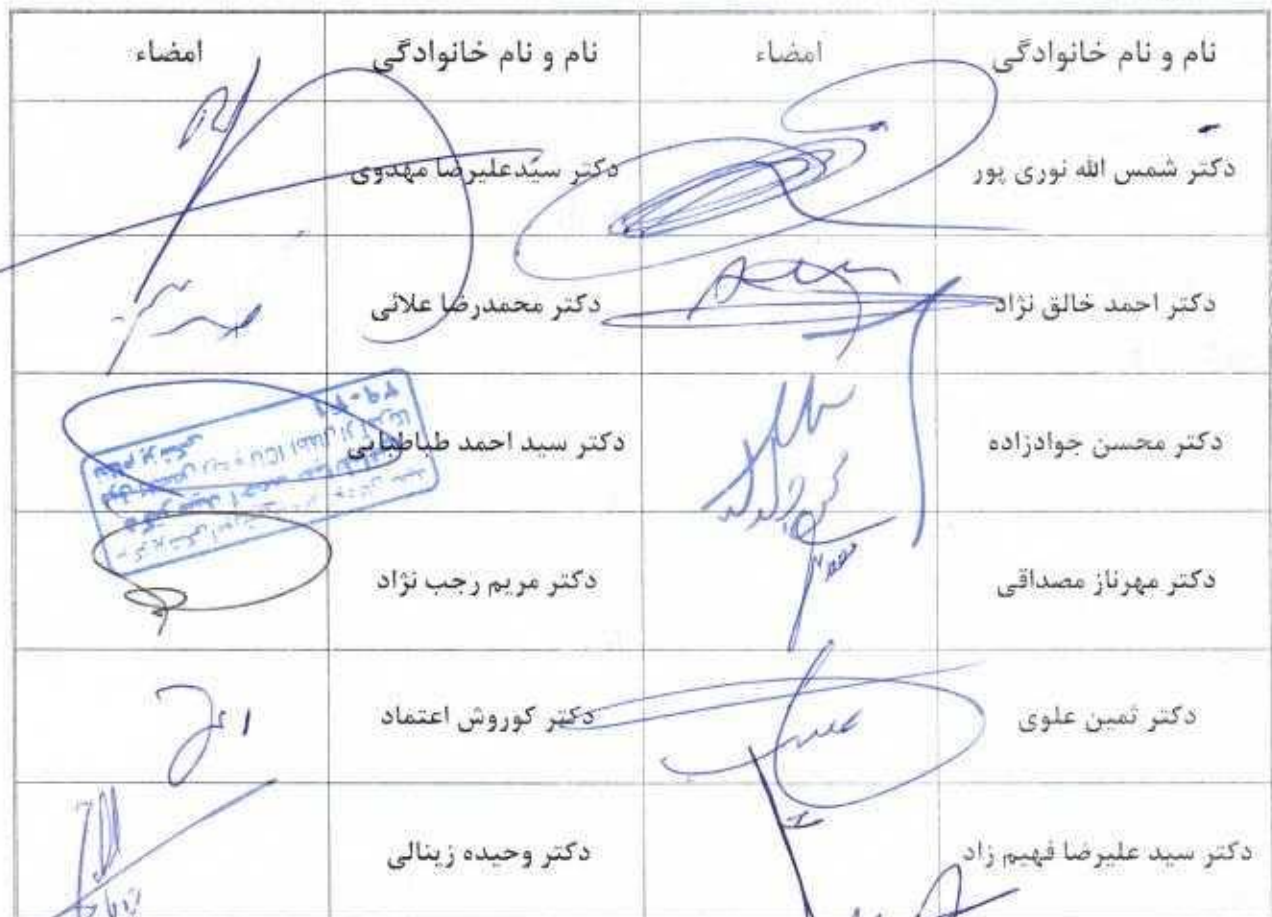 نام و نام خانوادگی امضاء نام و نام خانوادگی امضاء
دکتر شمس الله نوری پور دکتر سیّدعلیرضا مهدوی
دکتر احمد خالق نژاد دکتر محمدرضا علائی
دکتر محسن جوادزاده دکتر سید احمد طباطبایی
دکتر مهرناز مصداقی دکتر مریم رجب نژاد
دکتر ثمین علوی دکتر کوروش اعتماد
دکتر سید علیرضا فهیم زاد دکتر وحیده زینالی